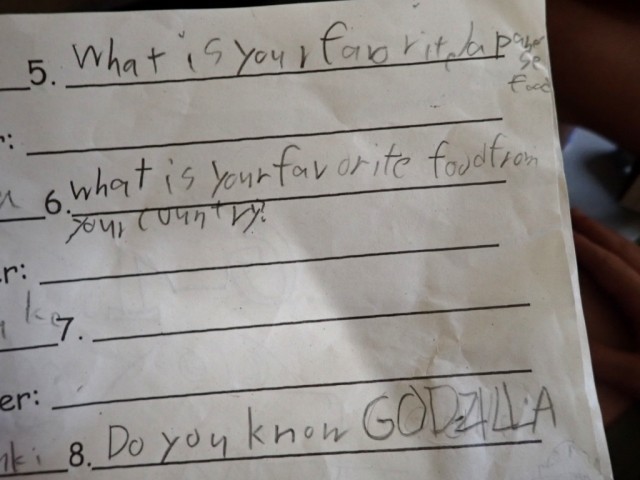 5. What is your favorite Japanese food
r:
6. what is your favorite food from
your country?
er:
7.
er:
8. Do you know GODZILLA